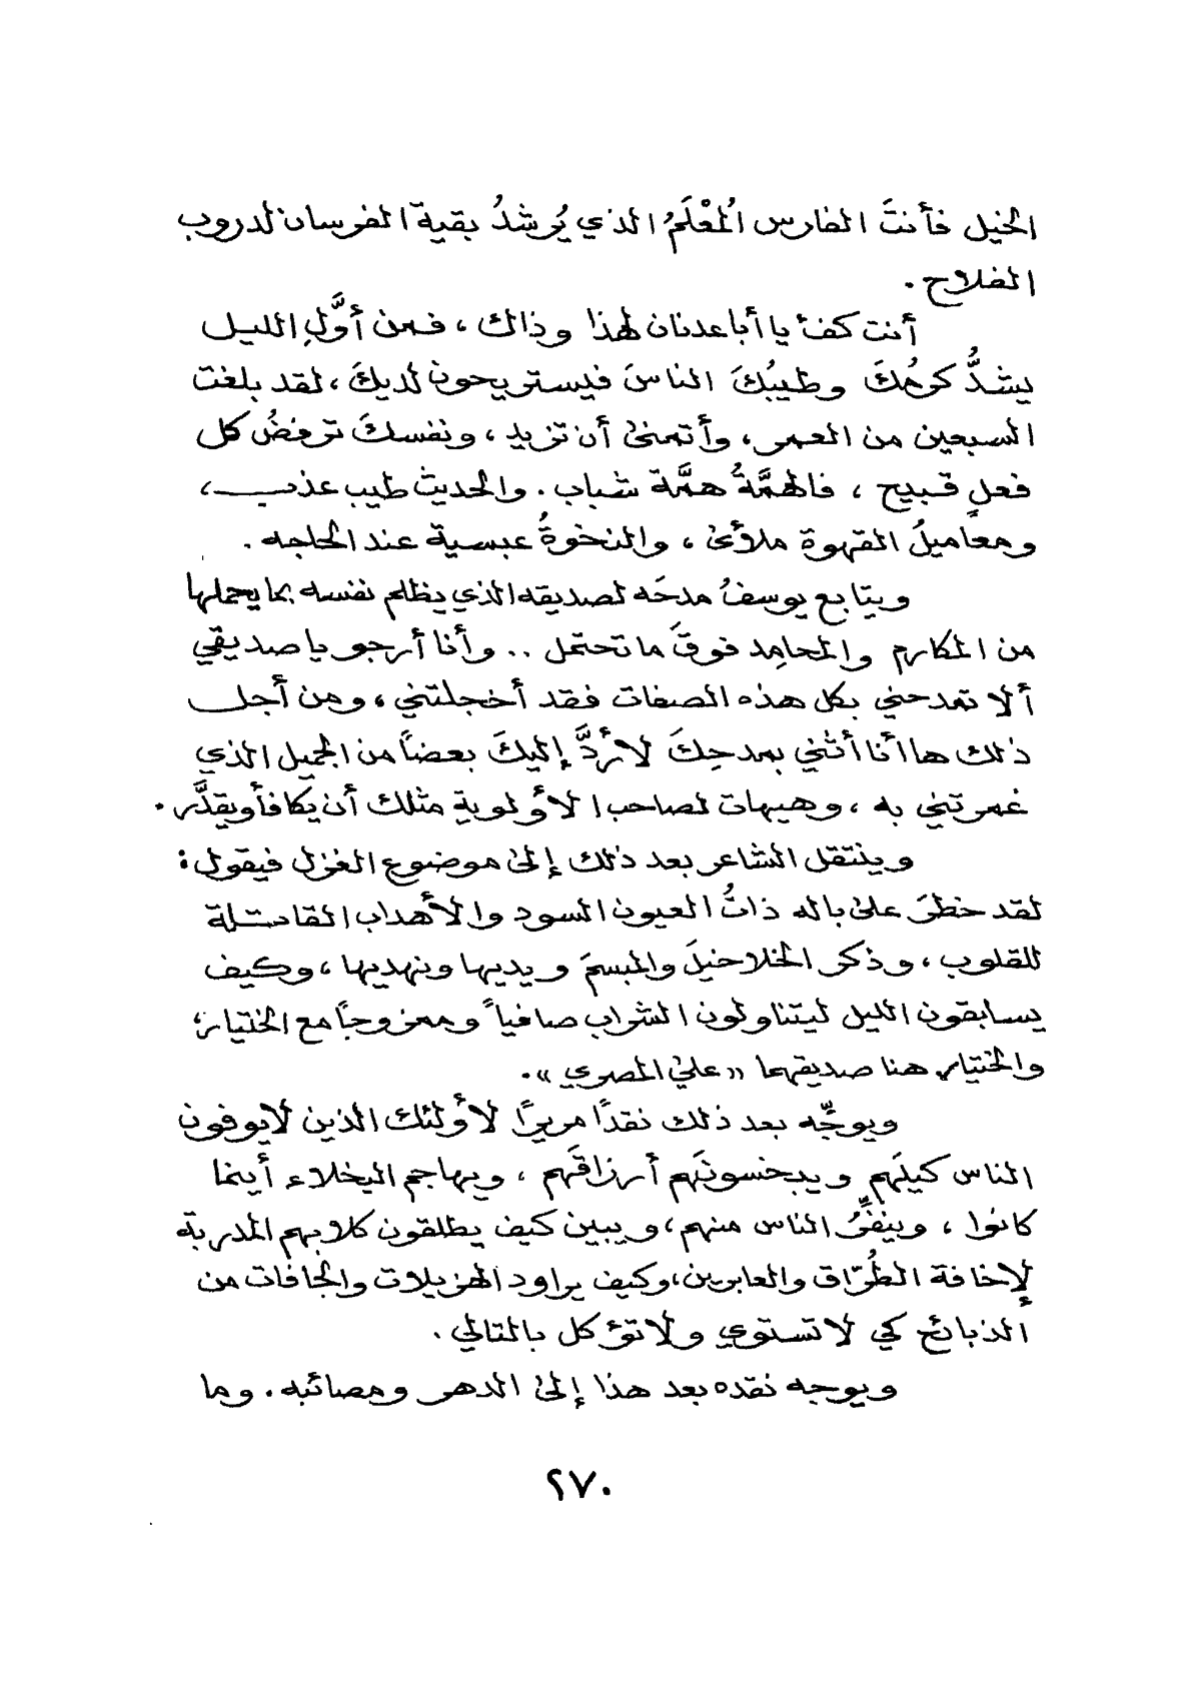 الخيل فأنتَ الفارس المُعْلَمُ الذي يُرشدُ بقية الفرسان لدروب
الفلاح .
أنت كفء يا أبا عدنان لهذا وذاك ، فمن أوَّلِ الليل
يشدُّ كرمُكَ وطيبُكَ الناسَ فيستريحون لديكَ ، لقد بلغت
السبعين من العمر ، وأتمنى أن تزيد ، ونفسكَ ترفضُ كل
فعلٍ قبيح ، فالهمَّةُ همَّة شباب . والحديث طيب عذب ،
ومعاميلُ القهوة ملأى ، والنخوةُ عبسية عند الحاجه .
ويتابع يوسفُ مدحَه لصديقه الذي يظلم نفسه بما يحملها
من المكارم والمحامِد فوقَ ما تحتمل .. وأنا أرجو يا صديقي
ألا تمدحني بكل هذه الصفات فقد أخجلتني ، ومن أجل
ذلك ها أنا أثني بمدحِكَ لأردَّ إليكَ بعضاً من الجميل الذي
غمرتني به ، وهيهات لصاحب الأولوية مثلك أن يكافأ ويقدَّر .
وينتقل الشاعر بعد ذلك إلى موضوع الغزل فيقول :
لقد خطرَ على باله ذاتُ العيون السود والأهداب القاتلة
للقلوب ، وذكر الخلاخيلَ والمبسمَ ويديها ونهديها ، وكيف
يسابقون الليل ليتناولون الشراب صافياً وممزوجاً مع الختيار ،
والختيار هنا صديقهما « علي المصري » .
ويوجّه بعد ذلك نقدًا مريرًا لأولئك الذين لا يوفون
الناس كيلَهم ويبخسونَهم أرزاقَهم ، ويهاجم البخلاء أينما
كانوا ، وينفِّرُ الناس منهم ، ويبين كيف يطلقون كلابهم المدربة
لإخافة الطُرّاق والعابرين ، وكيف يراود الهزيلات والجافات من
الذبائح كي لا تستوي ولا تؤكل بالتالي .
ويوجه نقده بعد هذا إلى الدهر ومصائبه . وما
٢٧٠